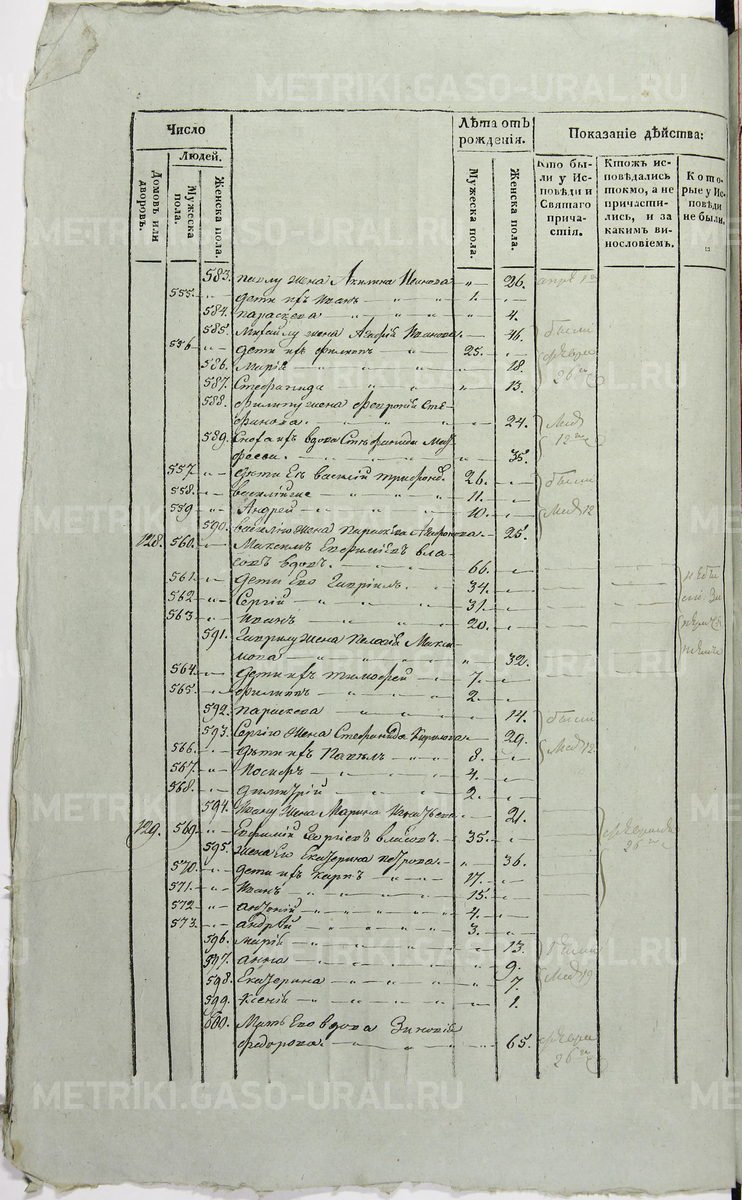 METRIKI.GASO-URAL.RU
Число
Людей.
Домовъ или дворовъ.
Мужеска пола.
Женска пола.
Лѣта отъ рожденія.
Мужеска пола.
Женска пола.
Показаніе дѣйства:
Кто бы-
ли у Ис-
повѣди и
Святаго
прича-
стія.
Ктожъ ис-
повѣдались
токмо, а не
причасти-
лись, и за
какимъ ви-
нословіемъ.
Кото-
рые у Ис-
повѣди
не были.
583. Павлу жена Акилина Иванова 26.
555. дети ихъ Иванъ 1.
584. Параскева 4.
585. Михайлу жена Ивановa 46. были
556 дети ихъ Филипъ 25. феврa
586. Марія 18. 26
587. Стефанида 13.
588. Филипу жена Сте-
фанова. 24. Мая
589. Сноха ихъ вдова 12
35.
557. дѣти Ея Василій 26. были
558. Василій же 11.
559 Андрей 10. Мая 12
590. Василію жена Параскева 25.
128. 560. Максимъ Евфиміевъ Вла-
совъ вдовъ. 66.
561. дети Его Гавріилъ. 34.
562 Сергій 31.
563 Иванъ 20.
591. Гаврилу жена Пелагія Макси-
мова 32.
564. дети ихъ Тимофей 7.
565. Филипъ 2.
592. Параскева 14. были
593. Сергію жена Стефанида 29.
566. дѣти ихъ Павелъ 8. Мая 12
567. Иосифъ 4.
568. Димитрій 2.
594. Ивану жена Марина 21.
129. 569 Евфимій Георгіевъ Власовъ. 35.
595. Жена Его Екатерина Петрова. 36. 26
570. дети ихъ Карпъ 17.
571. Иванъ 15.
572 Антоній 4.
573. Андрей 3.
596. Марія 13.
597. Анна 9. Мая 19
598. Екатерина 7.
599. Ксенія 1.
600. Мать Его вдова Зиновія
Федорова. 65. февра
26